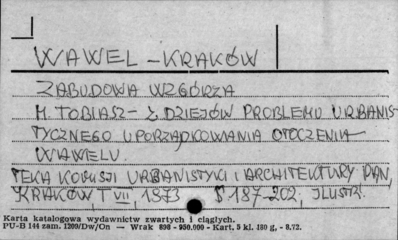 WAWEL - KRAKÓW
ZABUDOWA WZGÓRZA
M. TOBIASZ - Z DZIEJÓW PROBLEMU URBANIS
TYCZNEGO UPORZĄDKOWANIA OTOCZENIA
WAWELU.
TEKA KOMISJI URBANISTYKI I ARCHITEKTURY PAN,
KRAKÓW T VII, 1973 S 187-202, ILUSTR.
Karta katalogowa wydawnictw zwartych i ciągłych.
PU-B 144 zam. 1200/Dw/On — Wrak 898 - 950.000 - Kart. 5 kl. 180 g, - 8.72.